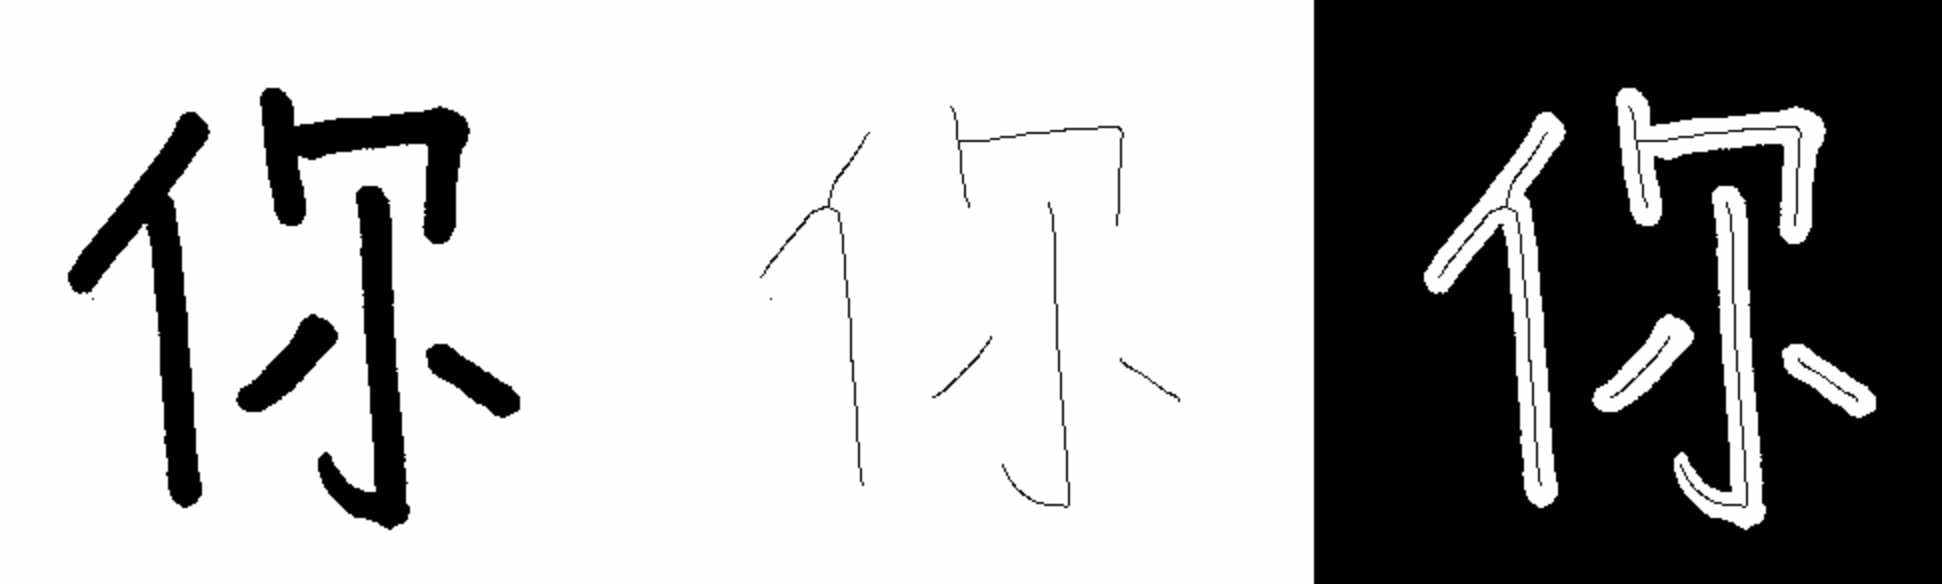 你 你 你